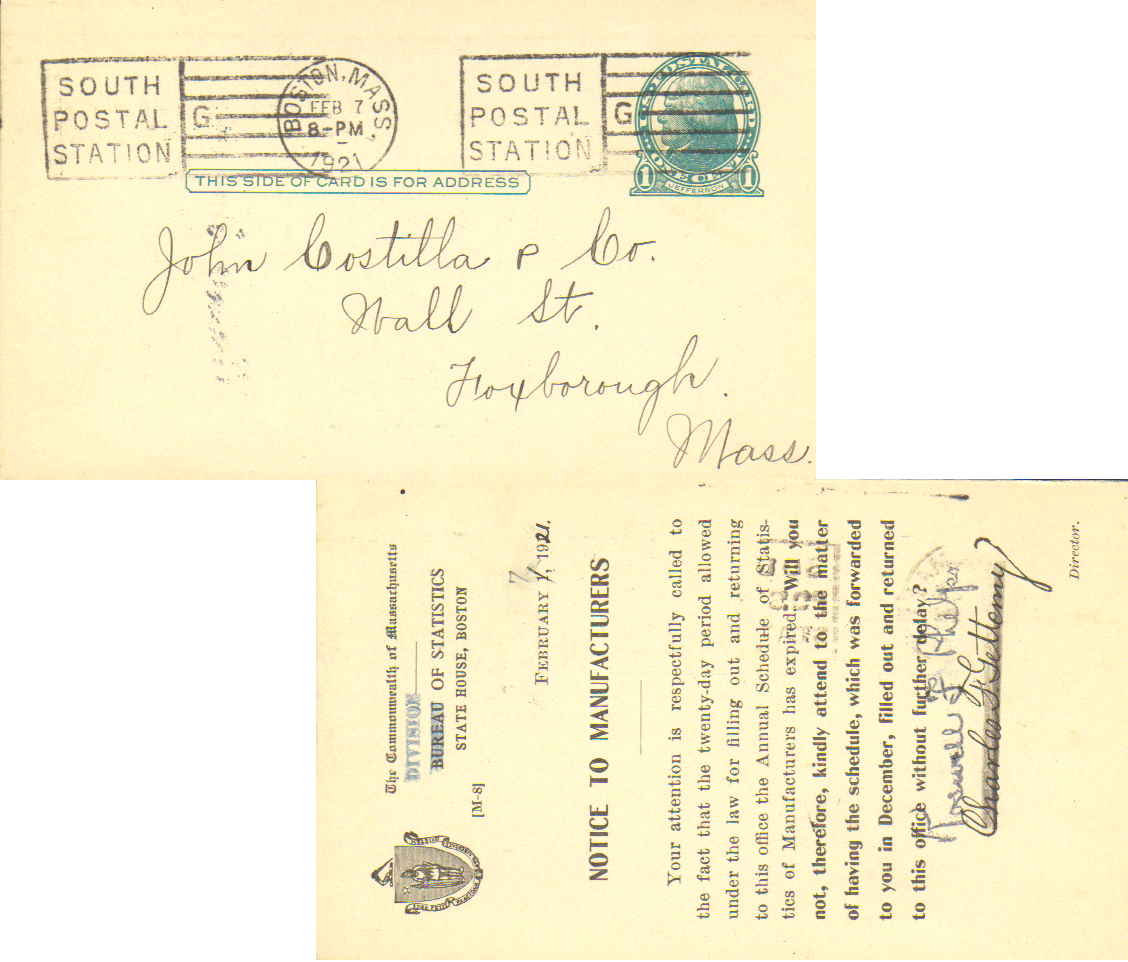 SOUTH
POSTAL
STATION
G
BOSTON, MASS.
FEB 7
8-PM
1921
SOUTH
POSTAL
STATION
G
U.S. POSTAL CARD
1 JEFFERSON 1
THIS SIDE OF CARD IS FOR ADDRESS
John Costilla & Co.
Wall St.
Foxborough.
Mass.
The Commonwealth of Massachusetts
DIVISION
BUREAU OF STATISTICS
STATE HOUSE, BOSTON
[M-8]
FEBRUARY 7, 1921.
NOTICE TO MANUFACTURERS
Your attention is respectfully called to
the fact that the twenty-day period allowed
under the law for filling out and returning
to this office the Annual Schedule of Statis-
tics of Manufacturers has expired. Will you
not, therefore, kindly attend to the matter
of having the schedule, which was forwarded
to you in December, filled out and returned
to this office without further delay?
Roswell F. Phelps
Charles F. Gettemy
Director.